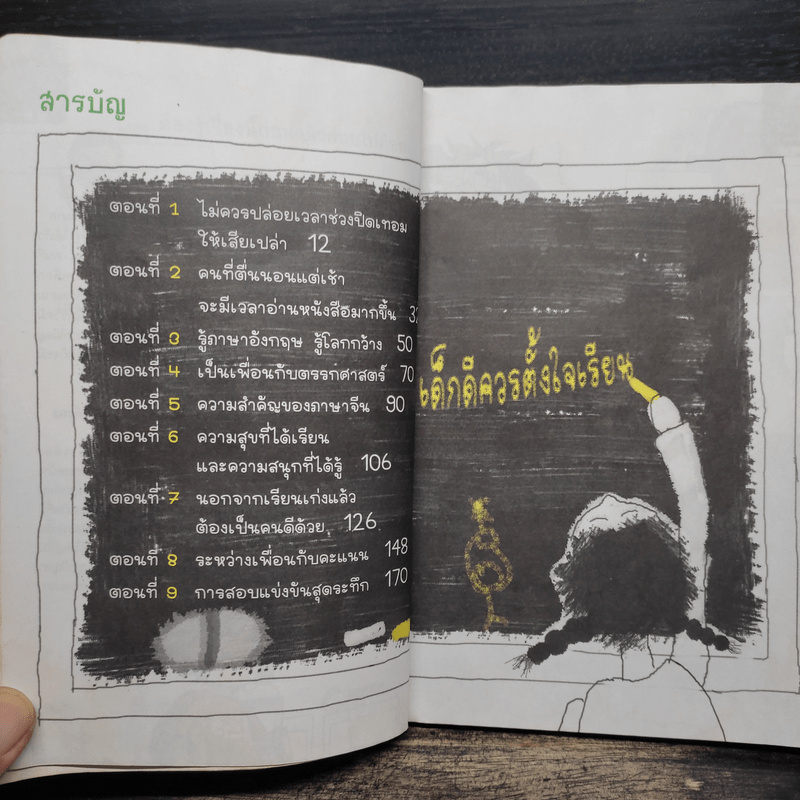 สารบัญ
ตอนที่ 1 ไม่ควรปล่อยเวลาช่วงปิดเทอม
ให้เสียเปล่า 12
ตอนที่ 2 คนที่ตื่นนอนแต่เช้า
จะมีเวลาอ่านหนังสือมากขึ้น 32
ตอนที่ 3 รู้ภาษาอังกฤษ รู้โลกกว้าง 50
ตอนที่ 4 เป็นเพื่อนกับตรรกศาสตร์ 70
ตอนที่ 5 ความสำคัญของภาษาจีน 90
ตอนที่ 6 ความสุขที่ได้เรียน
และความสนุกที่ได้รู้ 106
ตอนที่ 7 นอกจากเรียนเก่งแล้ว
ต้องเป็นคนดีด้วย 126
ตอนที่ 8 ระหว่างเพื่อนกับคะแนน 148
ตอนที่ 9 การสอบแข่งขันสุดระทึก 170
เด็กดีควรตั้งใจเรียน